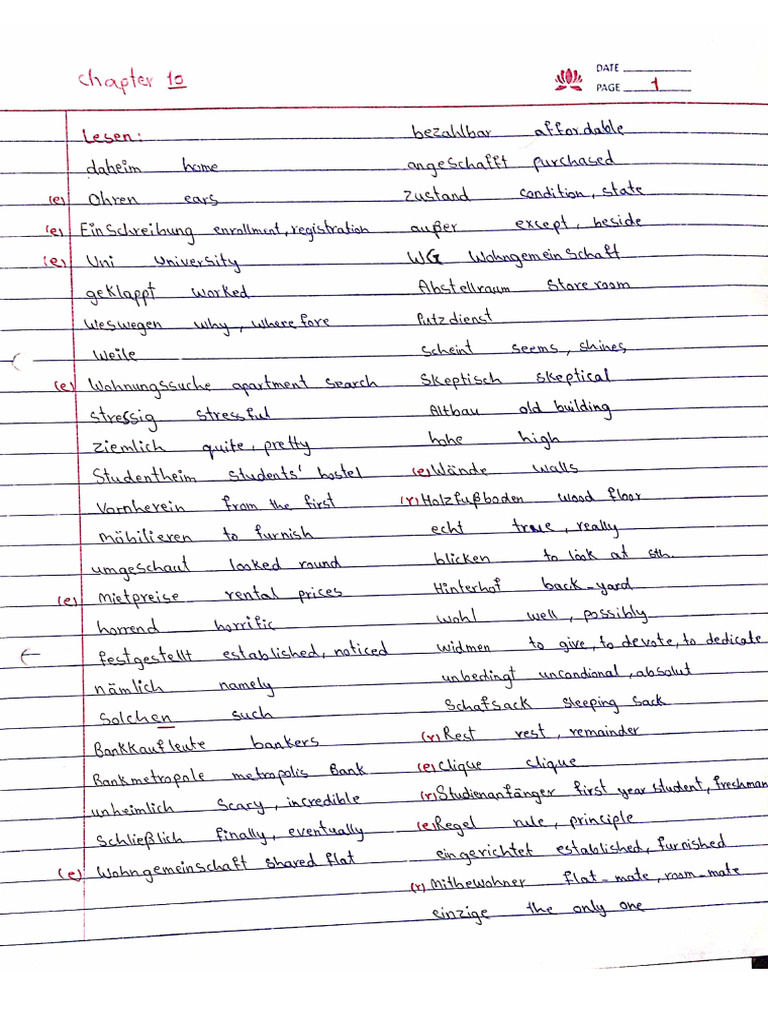 Chapter 10
DATE
PAGE 1
Lesen:
daheim home
(e) Ohren ears
(e) Einschreibung enrollment, registration
(e) Uni University
geklappt worked
weswegen why, wherefore
weile
(e) Wohnungssuche apartment search
stressig stressful
ziemlich quite, pretty
Studentheim students' hostel
Vornherein from the first
möbilieren to furnish
umgeschaut looked round
(e) Mietpreise rental prices
horrend horrific
festgestellt established, noticed
nämlich namely
Solchen such
Bankkaufleute bankers
Bankmetropole metropolis Bank
unheimlich scary, incredible
schließlich finally, eventually
(e) Wohngemeinschaft shared flat
bezahlbar affordable
angeschafft purchased
Zustand condition, state
außer except, beside
WG Wohngemeinschaft
Abstellraum Store room
Putzdienst
scheint seems, shines
Skeptisch skeptical
Altbau old building
hohe high
(e) Wände walls
(r) Holzfußboden wood floor
echt true, really
blicken to look at sth.
Hinterhof back-yard
wohl well, possibly
widmen to give, to devote, to dedicate
unbedingt uncondional, absolut
Schafsack sleeping sack
(r) Rest rest, remainder
(e) Clique clique
(r) Studienanfänger first year student, freshman
(e) Regel rule, principle
eingerichtet established, furnished
(r) Mitbewohner flat-mate, room-mate
einzige the only one